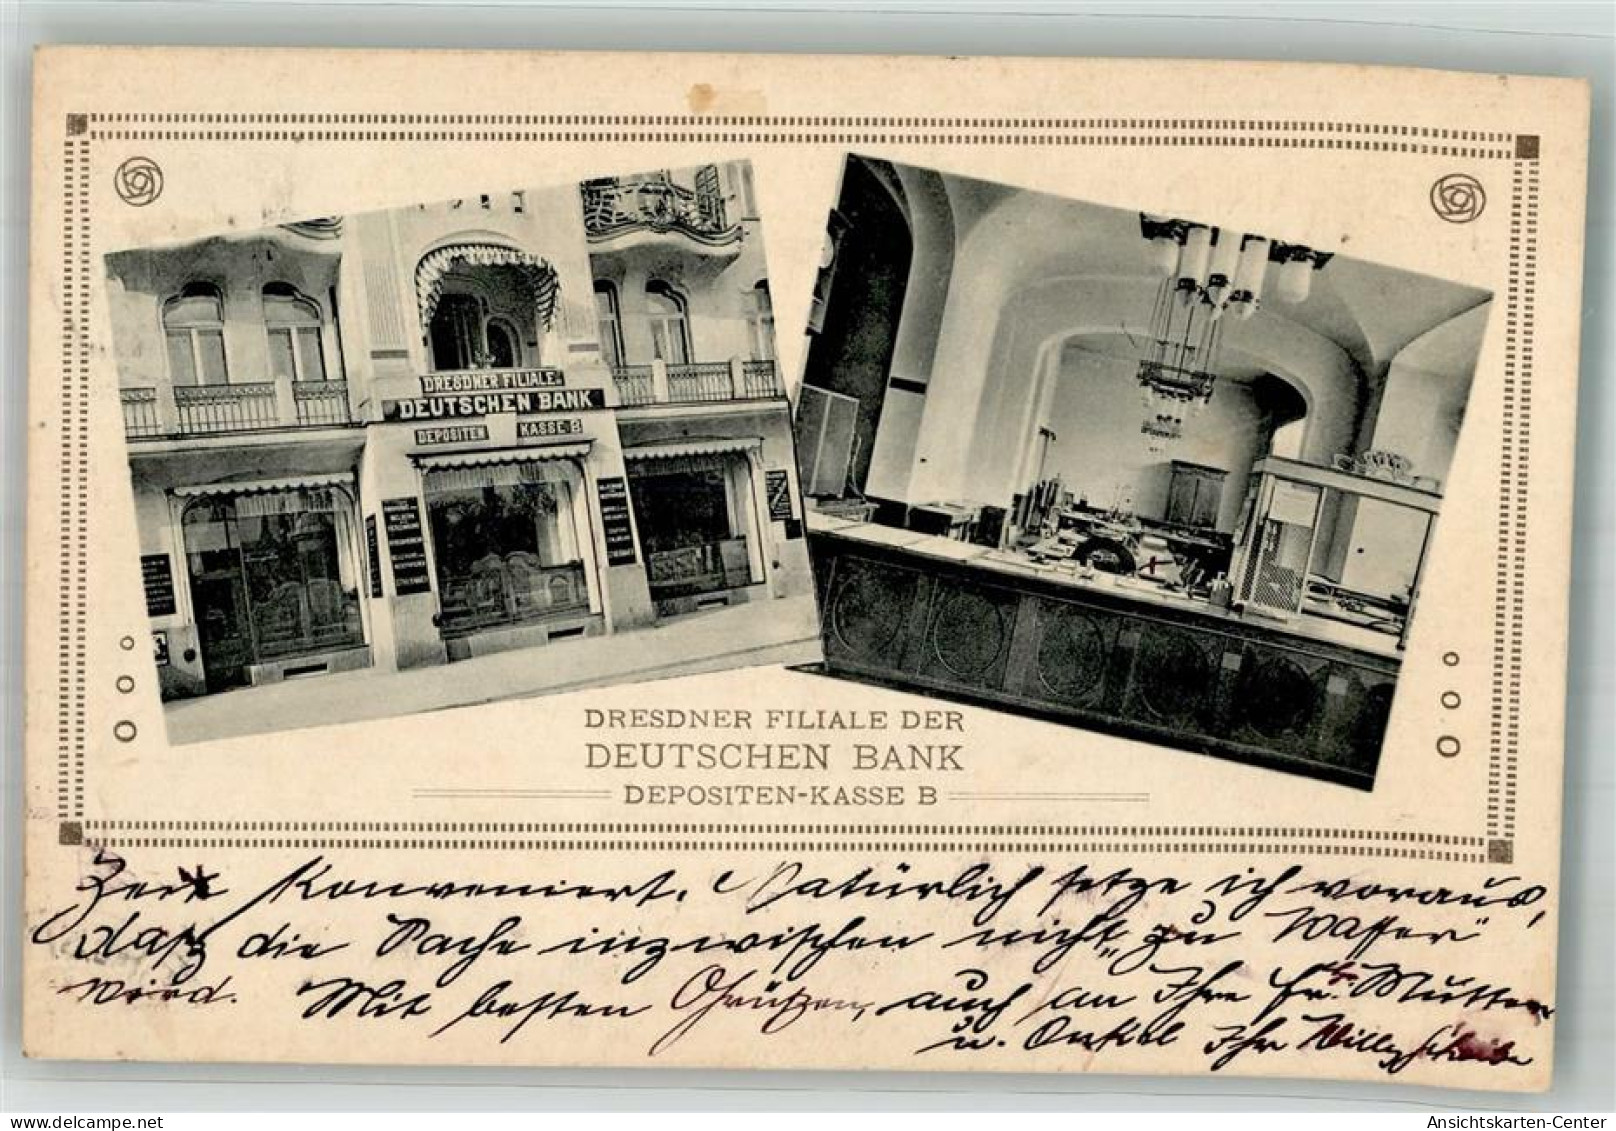 DRESDNER FILIALE DER
DEUTSCHEN BANK
DEPOSITEN KASSE B
DRESDNER FILIALE DER
DEUTSCHEN BANK
DEPOSITEN-KASSE B
Zeit konveniert. Natürlich setze ich voraus,
daß die Sache inzwischen nicht „zu Wasser"
wird. Mit besten Grüßen, auch an Ihre Fr. Mutter
u. Onkel Ihr Willy
Ansichtskarten-Center